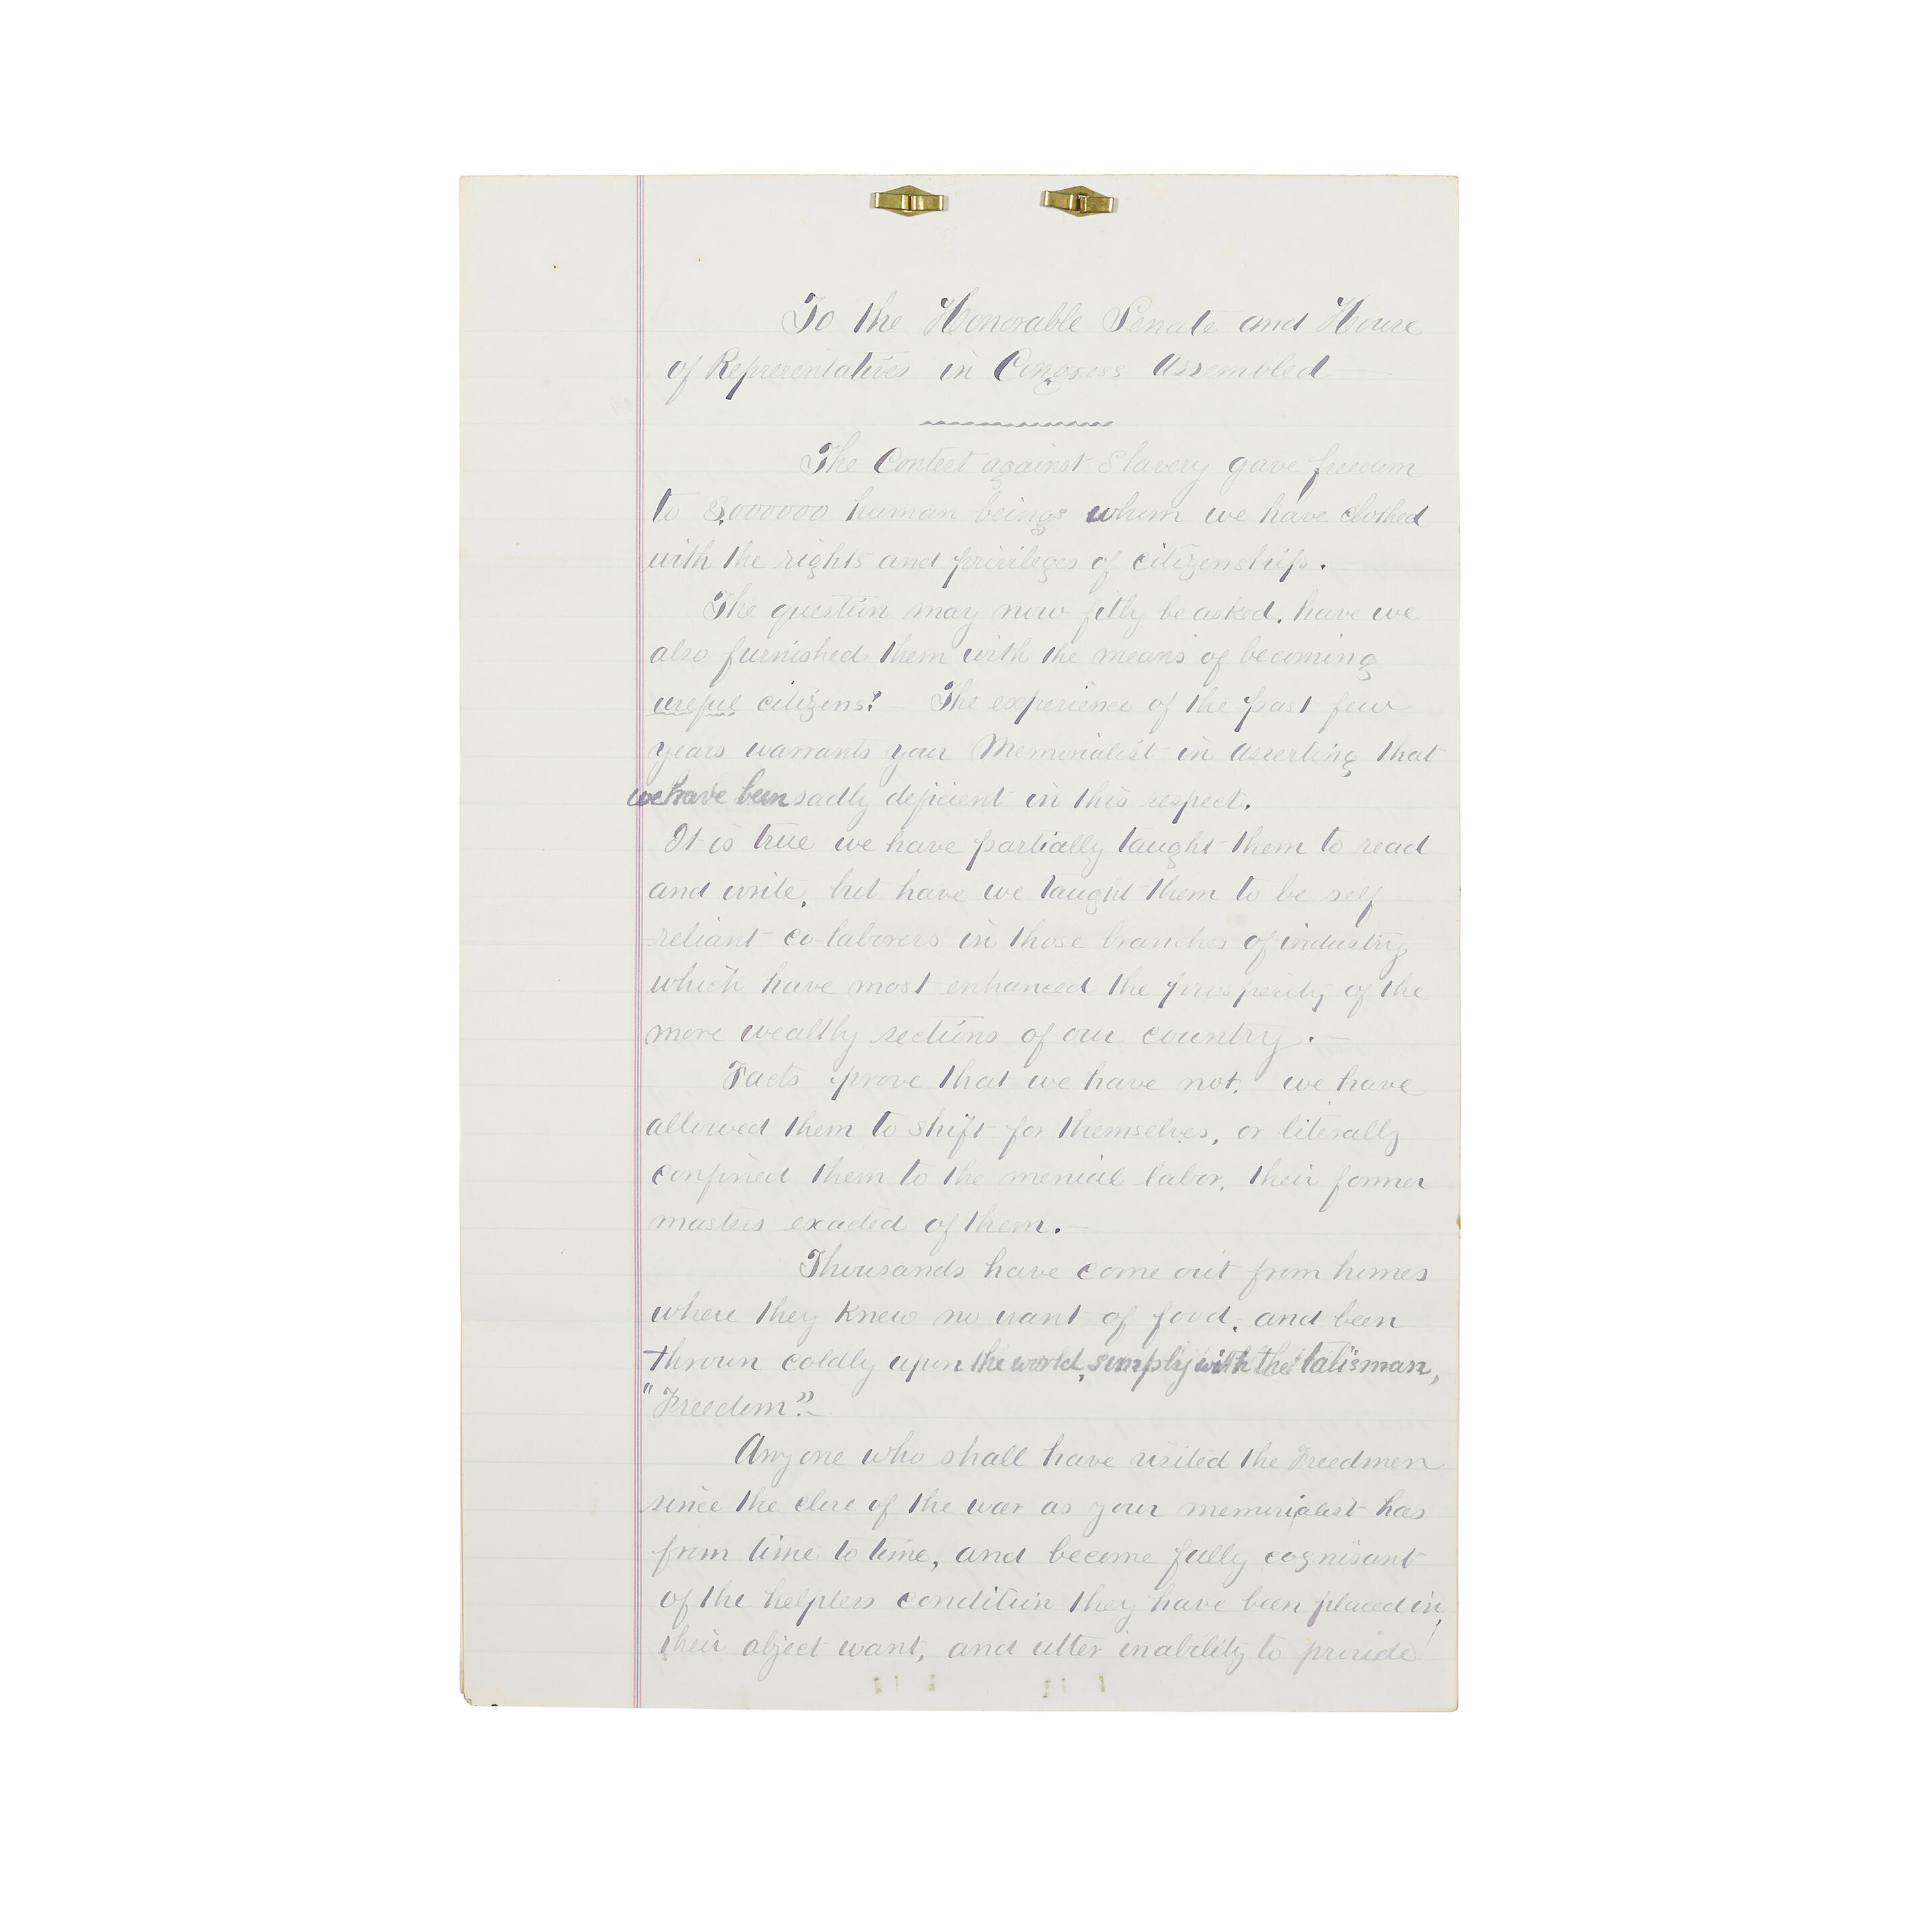 To the Honorable Senate and House
of Representatives in Congress Assembled —
The Contest against Slavery gave freedom
to 3,000000 human beings whom we have clothed
with the rights and privileges of citizenship.
The question may now fitly be asked, have we
also furnished them with the means of becoming
useful citizens? — The experience of the past few
years warrants your Memorialist in asserting that
we have been sadly deficient in this respect.
It is true we have partially taught them to read
and write, but have we taught them to be self
-reliant co-laborers in those branches of industry
which have most enhanced the prosperity of the
more wealthy sections of our country. —
Facts prove that we have not. we have
allowed them to shift for themselves, or literally
confined them to the menial labor, their former
masters exacted of them. —
Thousands have come out from homes
where they knew no want of food, and been
thrown coldly upon the world, simply with the talisman,
"Freedom". —
Anyone who shall have visited the Freedmen
since the close of the war as your memorialist has
from time to time, and become fully cognisant
of the helpless condition they have been placed in,
their abject want, and utter inability to provide